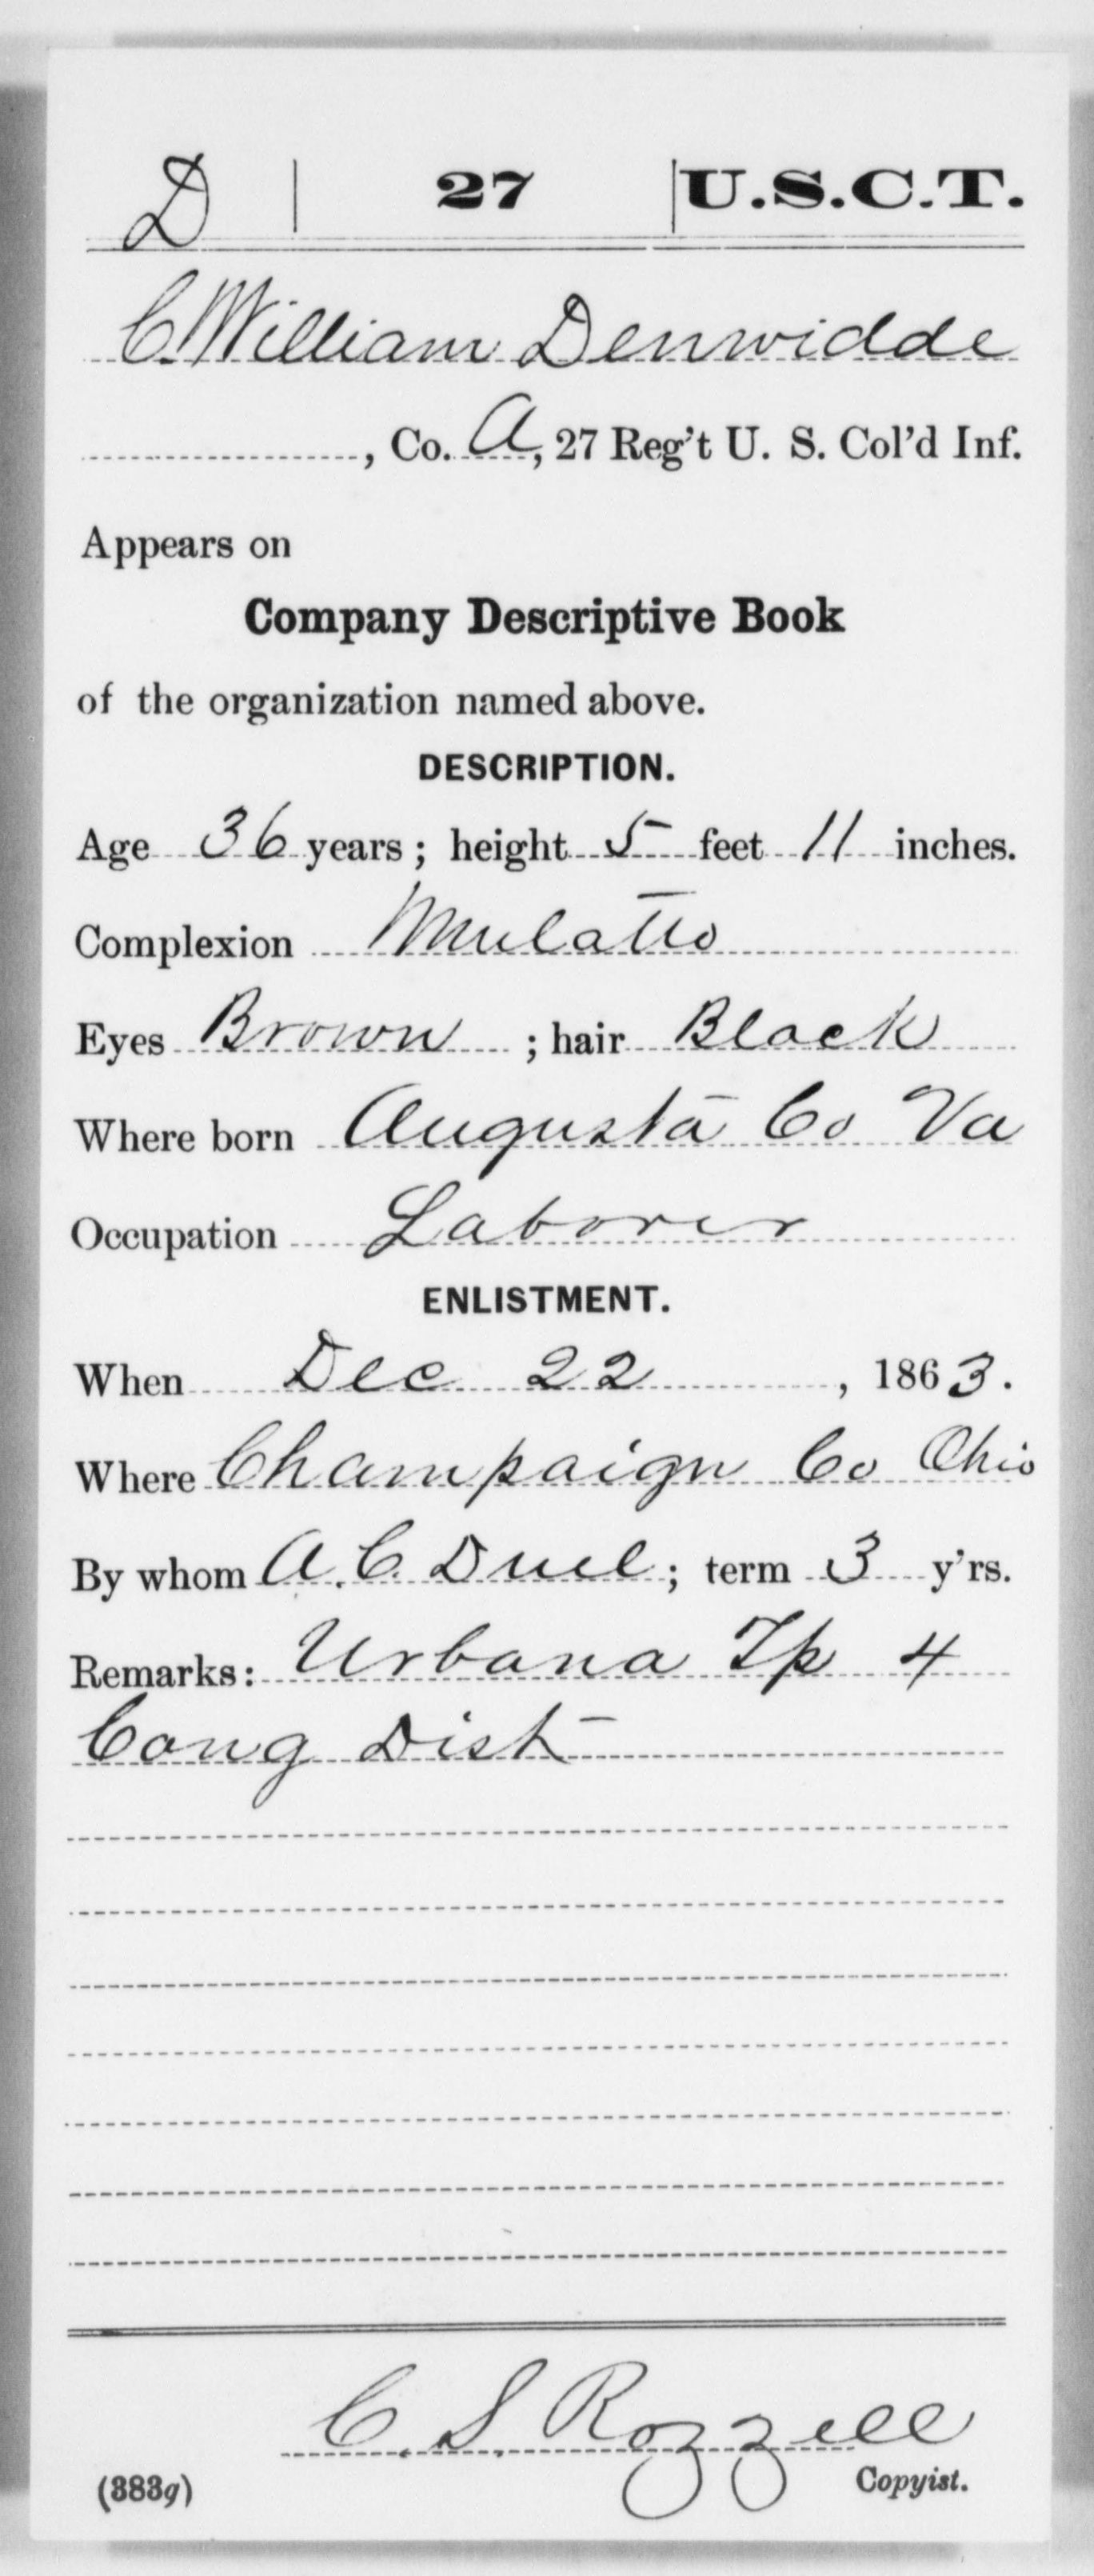 D | 27 | U.S.C.T.
C. William Denwidde
, Co. A, 27 Reg't U. S. Col'd Inf.
Appears on
Company Descriptive Book
of the organization named above.
DESCRIPTION.
Age 36 years; height 5 feet 11 inches.
Complexion Mulatto
Eyes Brown ; hair Black
Where born Augusta Co Va
Occupation Laborer
ENLISTMENT.
When Dec 22 , 1863.
Where Champaign Co Ohio
By whom A. C. Duel; term 3 y'rs.
Remarks: Urbana Tp 4
Cong Dist
C. S. Rozzell
(383g) Copyist.